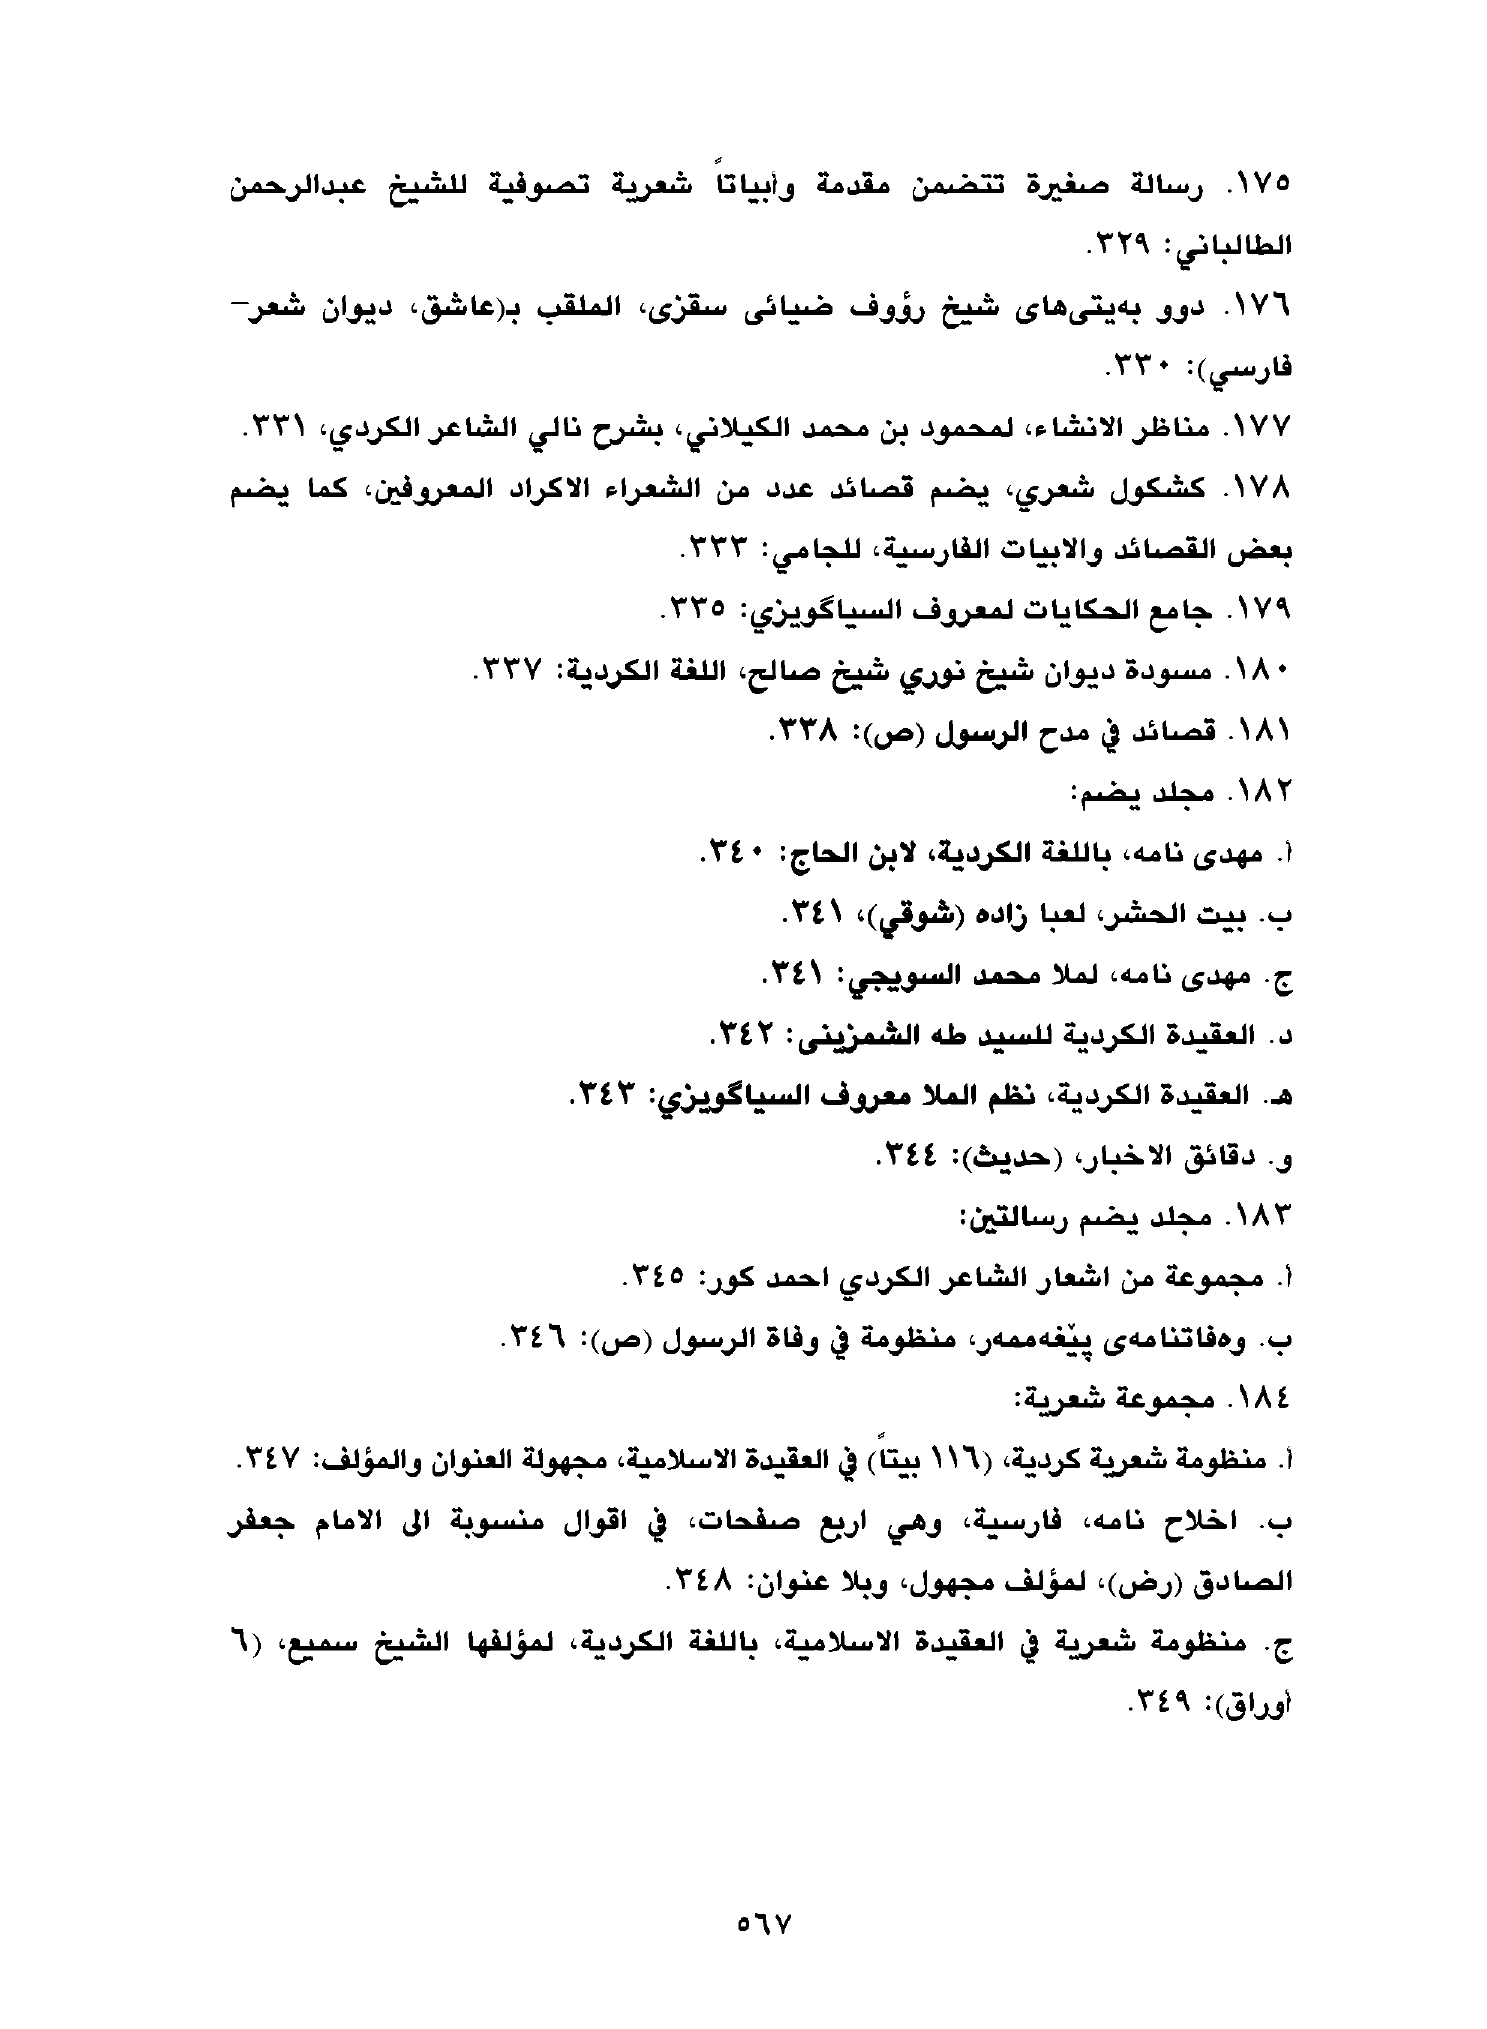 ١٧٥. رسالة صغيرة تتضمن مقدمة وأبياتاً شعرية تصوفية للشيخ عبدالرحمن
الطالباني: ٣٢٩.
١٧٦. دوو بەیتی‌های شیخ رؤوف ضیائی سقزی، الملقب بـ(عاشق، دیوان شعر-
فارسي): ٣٣٠.
١٧٧. مناظر الانشاء، لمحمود بن محمد الكيلاني، بشرح نالي الشاعر الكردي، ٣٣١.
١٧٨. كشكول شعري، يضم قصائد عدد من الشعراء الاكراد المعروفين، كما يضم
بعض القصائد والابيات الفارسية، للجامي: ٣٣٣.
١٧٩. جامع الحكايات لمعروف السياگويزي: ٣٣٥.
١٨٠. مسودة ديوان شيخ نوري شيخ صالح، اللغة الكردية: ٣٣٧.
١٨١. قصائد في مدح الرسول (ص): ٣٣٨.
١٨٢. مجلد يضم:
أ. مهدی نامه، باللغة الكردية، لابن الحاج: ٣٤٠.
ب. بيت الحشر، لعبا زاده (شوقي)، ٣٤١.
ج. مهدی نامه، لملا محمد السويجي: ٣٤١.
د. العقيدة الكردية للسيد طه الشمزينى: ٣٤٢.
هـ. العقيدة الكردية، نظم الملا معروف السياگويزي: ٣٤٣.
و. دقائق الاخبار، (حديث): ٣٤٤.
١٨٣. مجلد يضم رسالتين:
أ. مجموعة من اشعار الشاعر الكردي احمد كور: ٣٤٥.
ب. وەفاتنامەی پێغەممەر، منظومة في وفاة الرسول (ص): ٣٤٦.
١٨٤. مجموعة شعرية:
أ. منظومة شعرية كردية، (١١٦ بيتاً) في العقيدة الاسلامية، مجهولة العنوان والمؤلف: ٣٤٧.
ب. اخلاح نامه، فارسية، وهي اربع صفحات، في اقوال منسوبة الى الامام جعفر
الصادق (رض)، لمؤلف مجهول، وبلا عنوان: ٣٤٨.
ج. منظومة شعرية في العقيدة الاسلامية، باللغة الكردية، لمؤلفها الشيخ سميع، (٦
أوراق): ٣٤٩.
٥٦٧